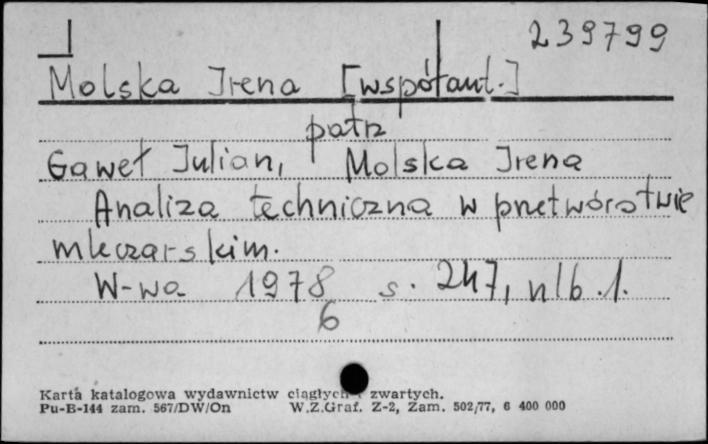 239799
Molska Irena [współaut.]
patrz
Gaweł Julian, Molska Irena
Analiza techniczna w przetwórstwie
mleczarskim.
W-wa 1978 s. 247, nlb. 1.
6
Karta katalogowa wydawnictw ciągłych i zwartych.
Pu-B-144 zam. 567/DW/On W.Z.Graf. Z-2, Zam. 502/77, 6 400 000